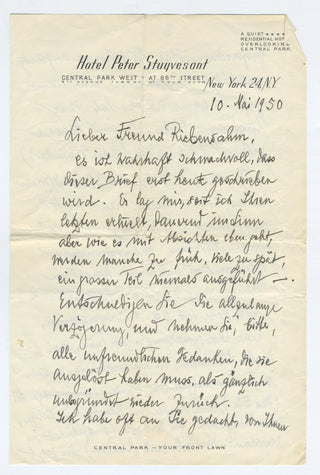 A QUIET
RESIDENTIAL HOTEL
OVERLOOKING
CENTRAL PARK
Hotel Peter Stuyvesant
CENTRAL PARK WEST - AT 86TH STREET
New York 24, N.Y.
10. Mai 1950
Lieber Freund Riebensahm,
es ist wahrhaft schmachvoll, dass
dieser Brief erst heute geschrieben
wird. Er lag mir, seit ich Ihren
letzten erhielt, dauernd im Sinn
aber wie es mit Absichten eben geht,
werden manche zu früh, viele zu spät,
ein grosser Teil niemals ausgeführt –.
Entschuldigen Sie die allzulange
Verzögerung, und nehmen Sie, bitte,
alle unfreundlichen Gedanken, die sie
ausgelöst haben muss, als gänzlich
unbegründet wieder zurück.
Ich habe oft an Sie gedacht, von Ihnen
CENTRAL PARK — YOUR FRONT LAWN